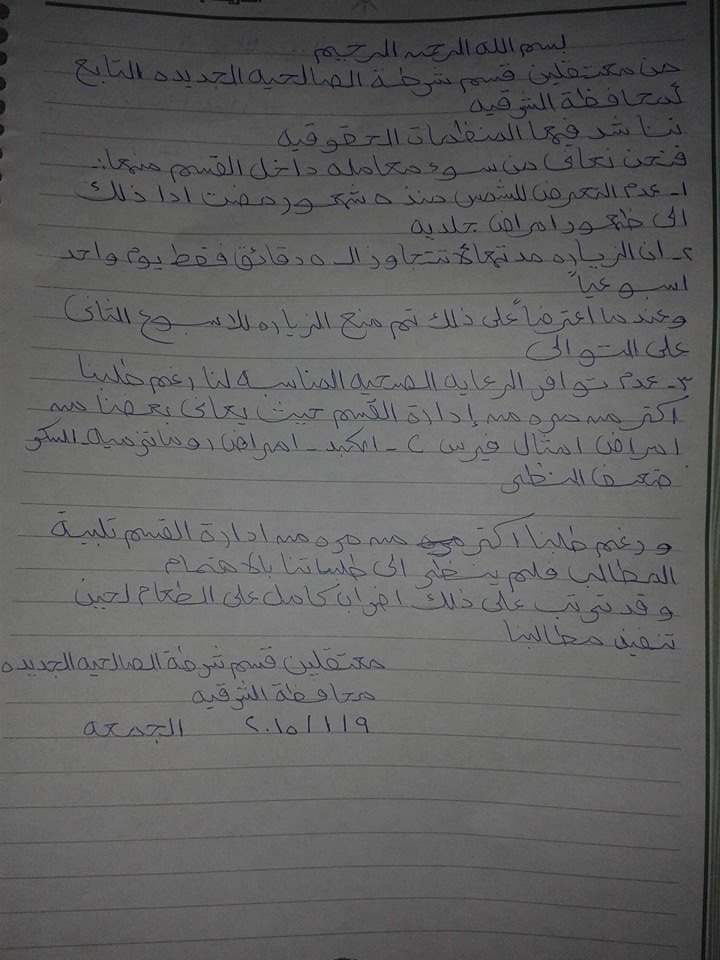 بسم الله الرحمن الرحيم
من معتقلين قسم شرطة الصالحيه الجديده التابع
لمحافظة الشرقيه
نناشد فيها المنظمات الحقوقيه
فنحن نعانى من سوء معامله داخل القسم منها:
١- عدم التعرض للشمس منذ ٥ شهور مضت ادا ذلك
الى ظهور امراض جلديه
٢- ان الزياره مدتها لا تتجاوز الـ ٥ دقائق فقط يوم واحد
اسبوعياً
وعندما اعترضنا على ذلك تم منع الزياره للاسبوع الثانى
على التوالى
٣- عدم توافر الرعايه الصحيه المناسبه لنا رغم طلبنا
اكثر من مره من إدارة القسم حيث يعانى بعضنا من
امراض امثال فيرس C - الكبد - امراض روماتزميه - السكر
ضعف النظر
ورغم طلبنا اكثر من مره من ادارة القسم تلبية
المطالب فلم ينظر الى طلباتنا بالاهتمام
وقد ترتب على ذلك اضراب كامل على الطعام لحين
تنفيذ مطالبنا
معتقلين قسم شرطة الصالحيه الجديده
محافظة الشرقيه
٢٠١٥/١/٩ الجمعه